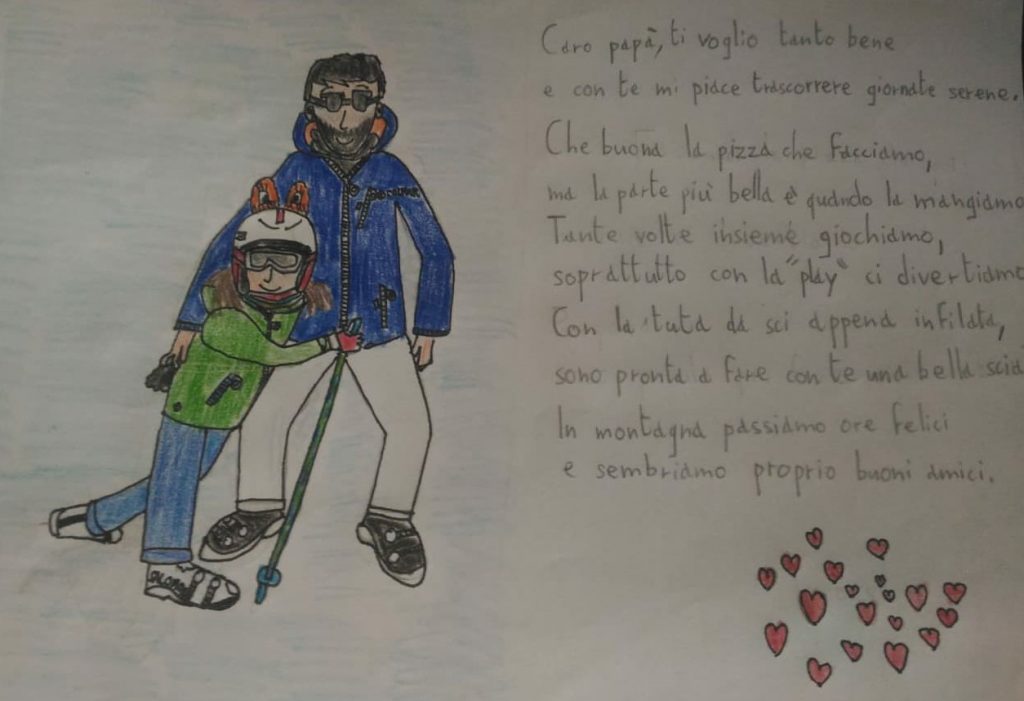 Caro papà, ti voglio tanto bene
e con te mi piace trascorrere giornate serene.
Che buona la pizza che facciamo,
ma la parte più bella è quando la mangiamo
Tante volte insieme giochiamo,
soprattutto con la "play" ci divertiamo
Con la tuta da sci appena infilata,
sono pronta a fare con te una bella scia
In montagna passiamo ore felici
e sembriamo proprio buoni amici.